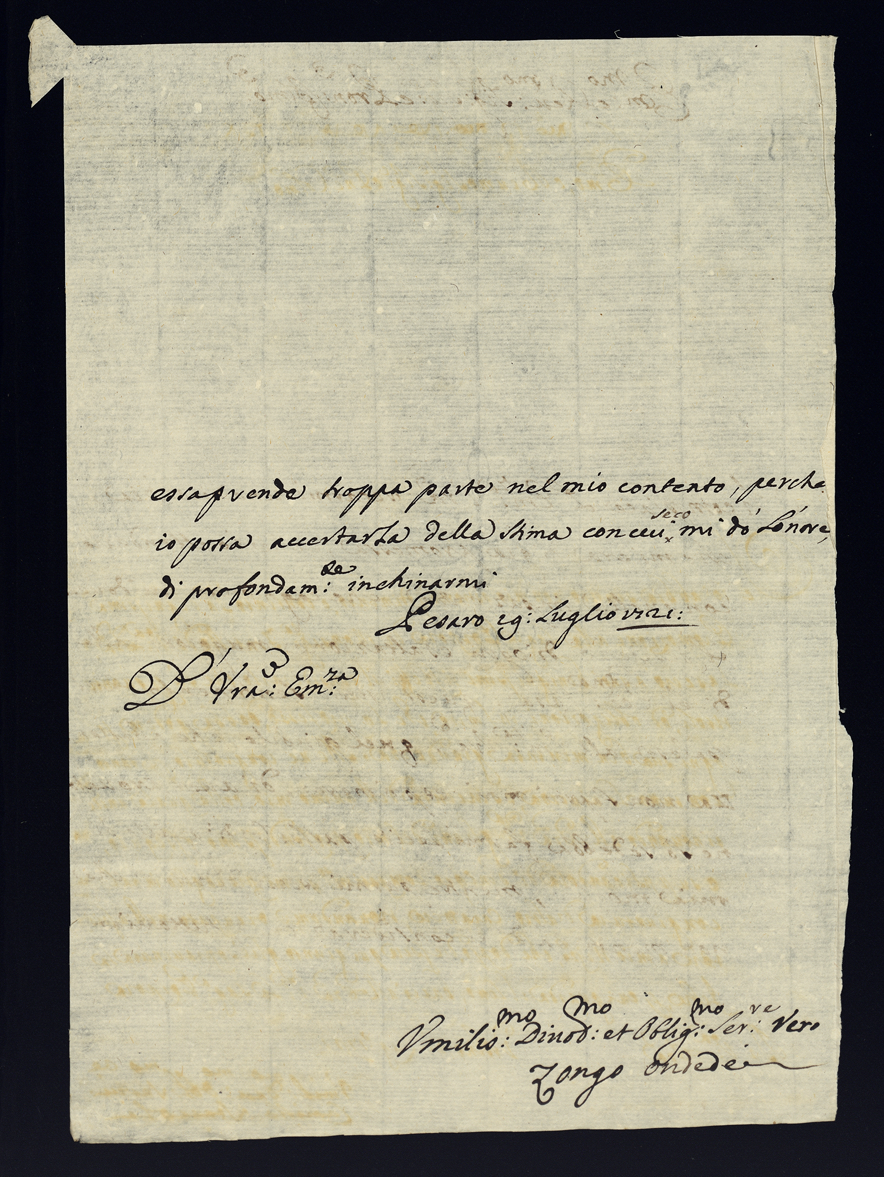 essa prende troppa parte nel mio contento, perche
io possa accertarla della stima con cui seco mi dò l'onore,
di profondam:te inchinarmi
Pesaro 29: Luglio 1721:
D' Vra: Em:za
Vmilis:mo Diuod:mo et Oblig:mo Ser:re Vero
Zongo Ondedei